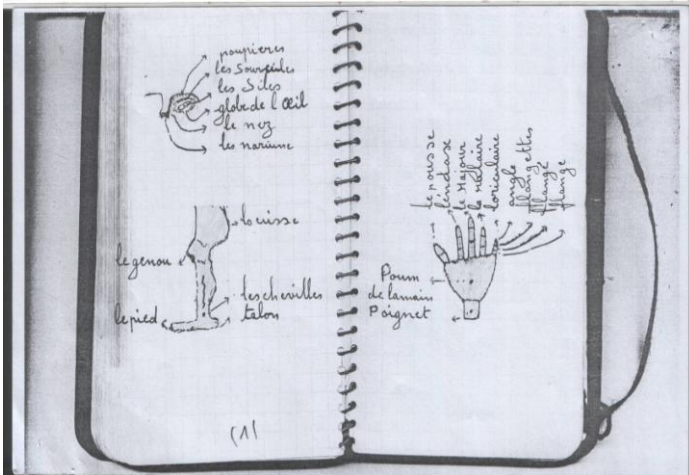 poupieres
les Sourcules
les Siles
globe de l'Œil
le nez
les narium
la cuisse
le genou
les chevilles
le pied
talon
(1)
le pousse
lendase
le Majour
la Nulaire
loriculaire
angle
flangettes
flange
flange
Poum
de lamain
Poignet